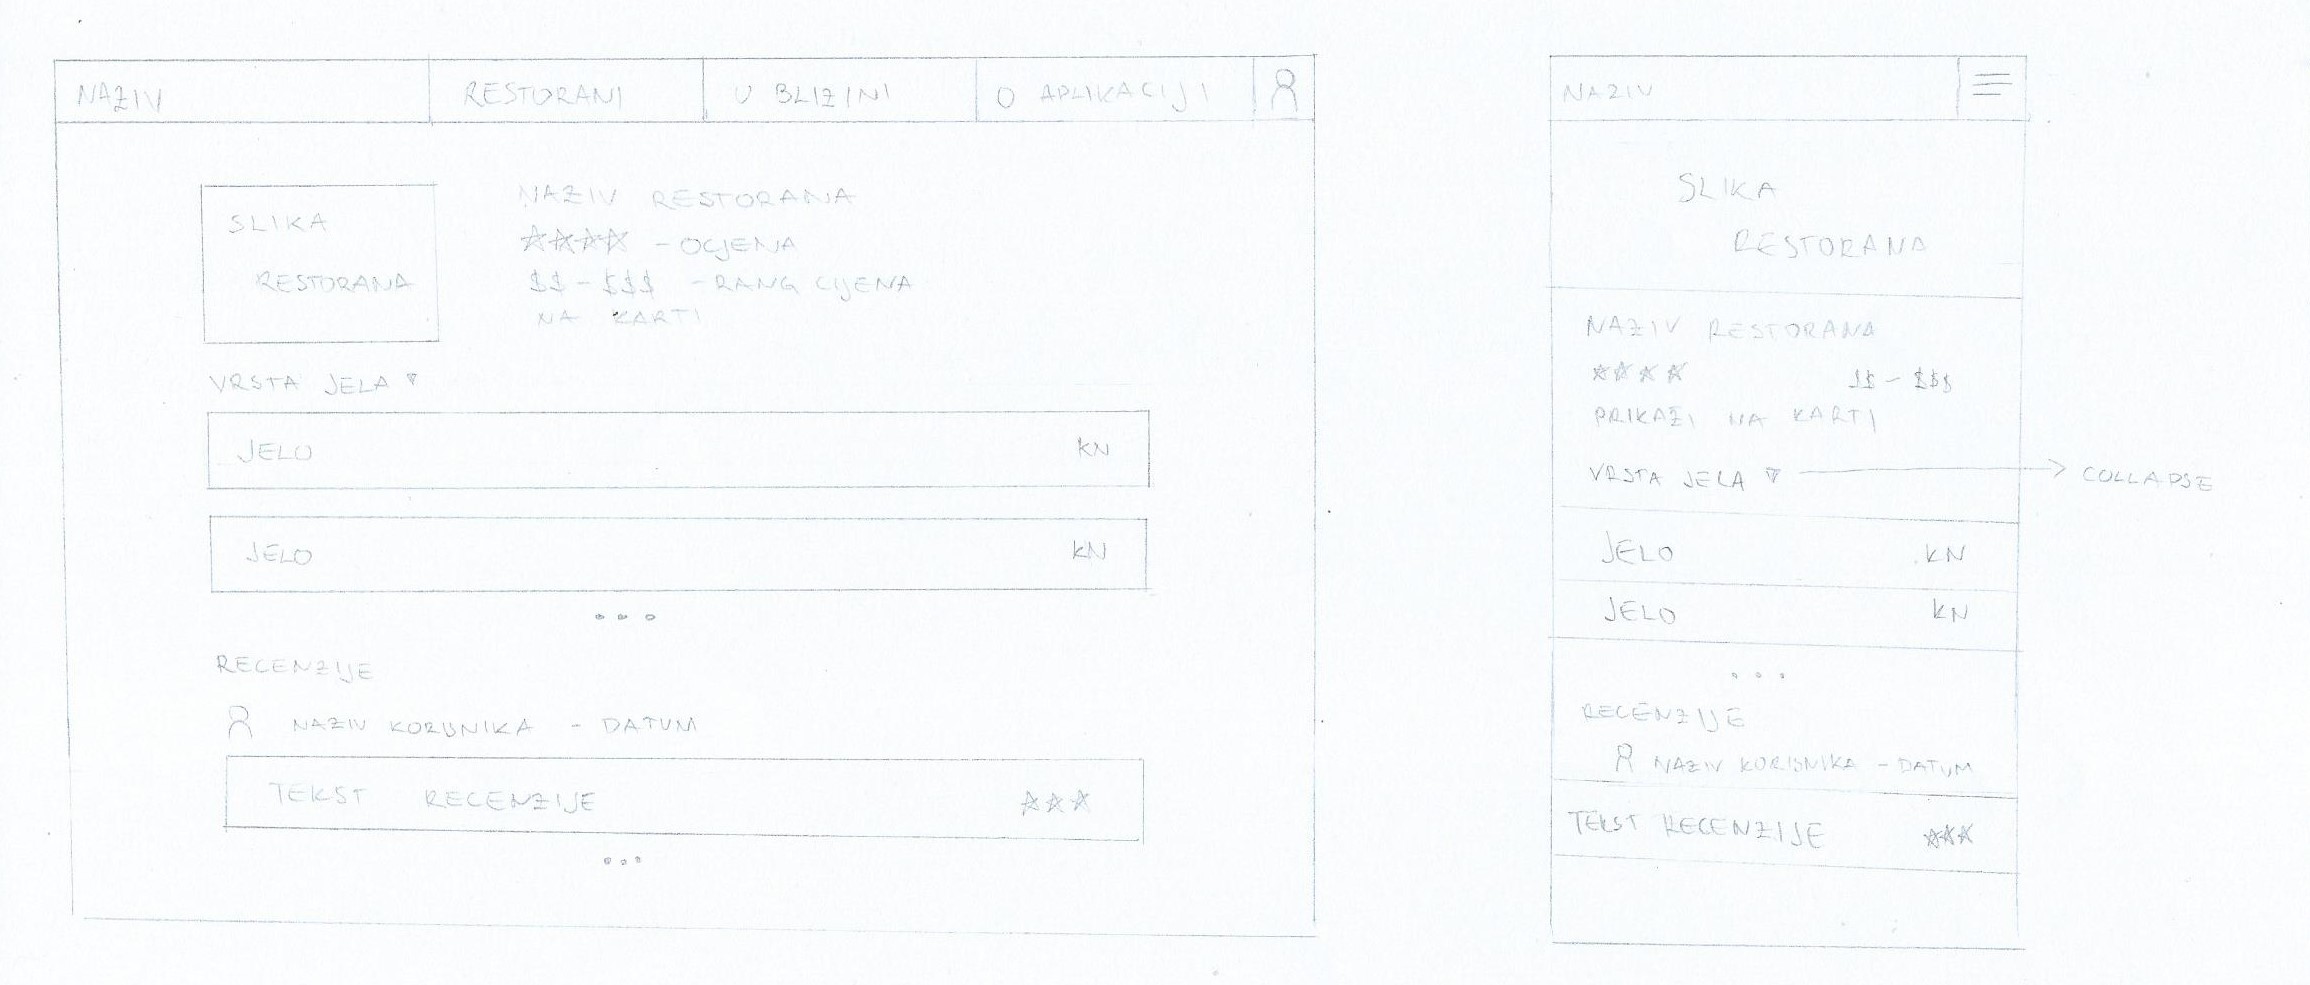 NAZIV RESTORANI U BLIZINI O APLIKACIJI
SLIKA
RESTORANA
NAZIV RESTORANA
- OCJENA
$$ - $$$ - RANG CIJENA
NA KARTI
VRSTA JELA
JELO KN
JELO KN
...
RECENZIJE
NAZIV KORISNIKA - DATUM
TEKST RECENZIJE
...
NAZIV
SLIKA
RESTORANA
NAZIV RESTORANA
$$ - $$$
PRIKAŽI NA KARTI
VRSTA JELA → COLLAPSE
JELO KN
JELO KN
...
RECENZIJE
NAZIV KORISNIKA - DATUM
TEKST RECENZIJE